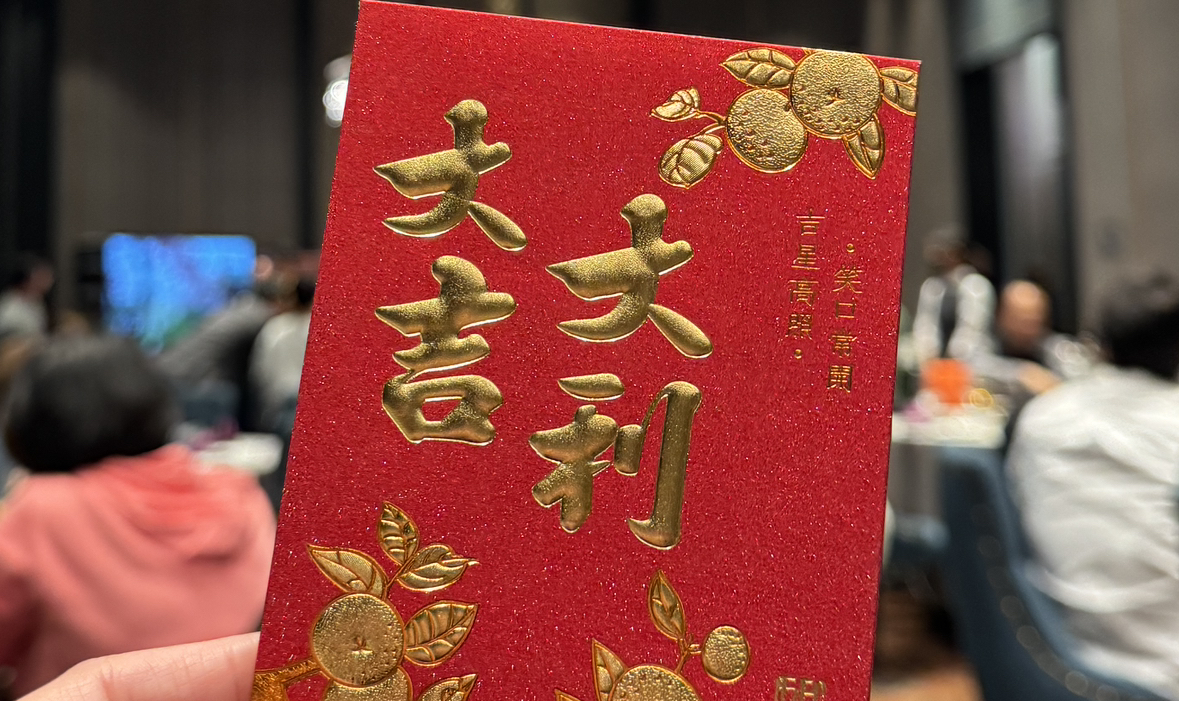 大吉
大利
•笑口常開
吉星高照•